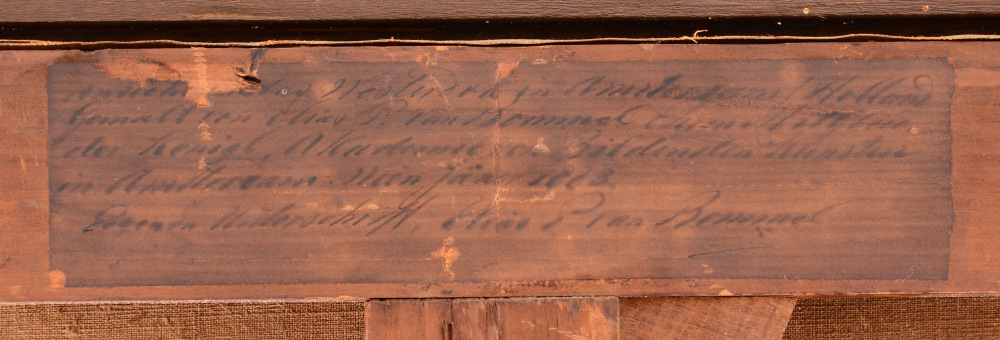 das Wester dok zu Amsterdam, Holland
Gemalt von Elias P. van Bommel Ehren Mitglied
der Königl. Akademie v. Bildenden Künsten
in Amsterdam
Eigenen Unterschrift, Elias P van Bommel